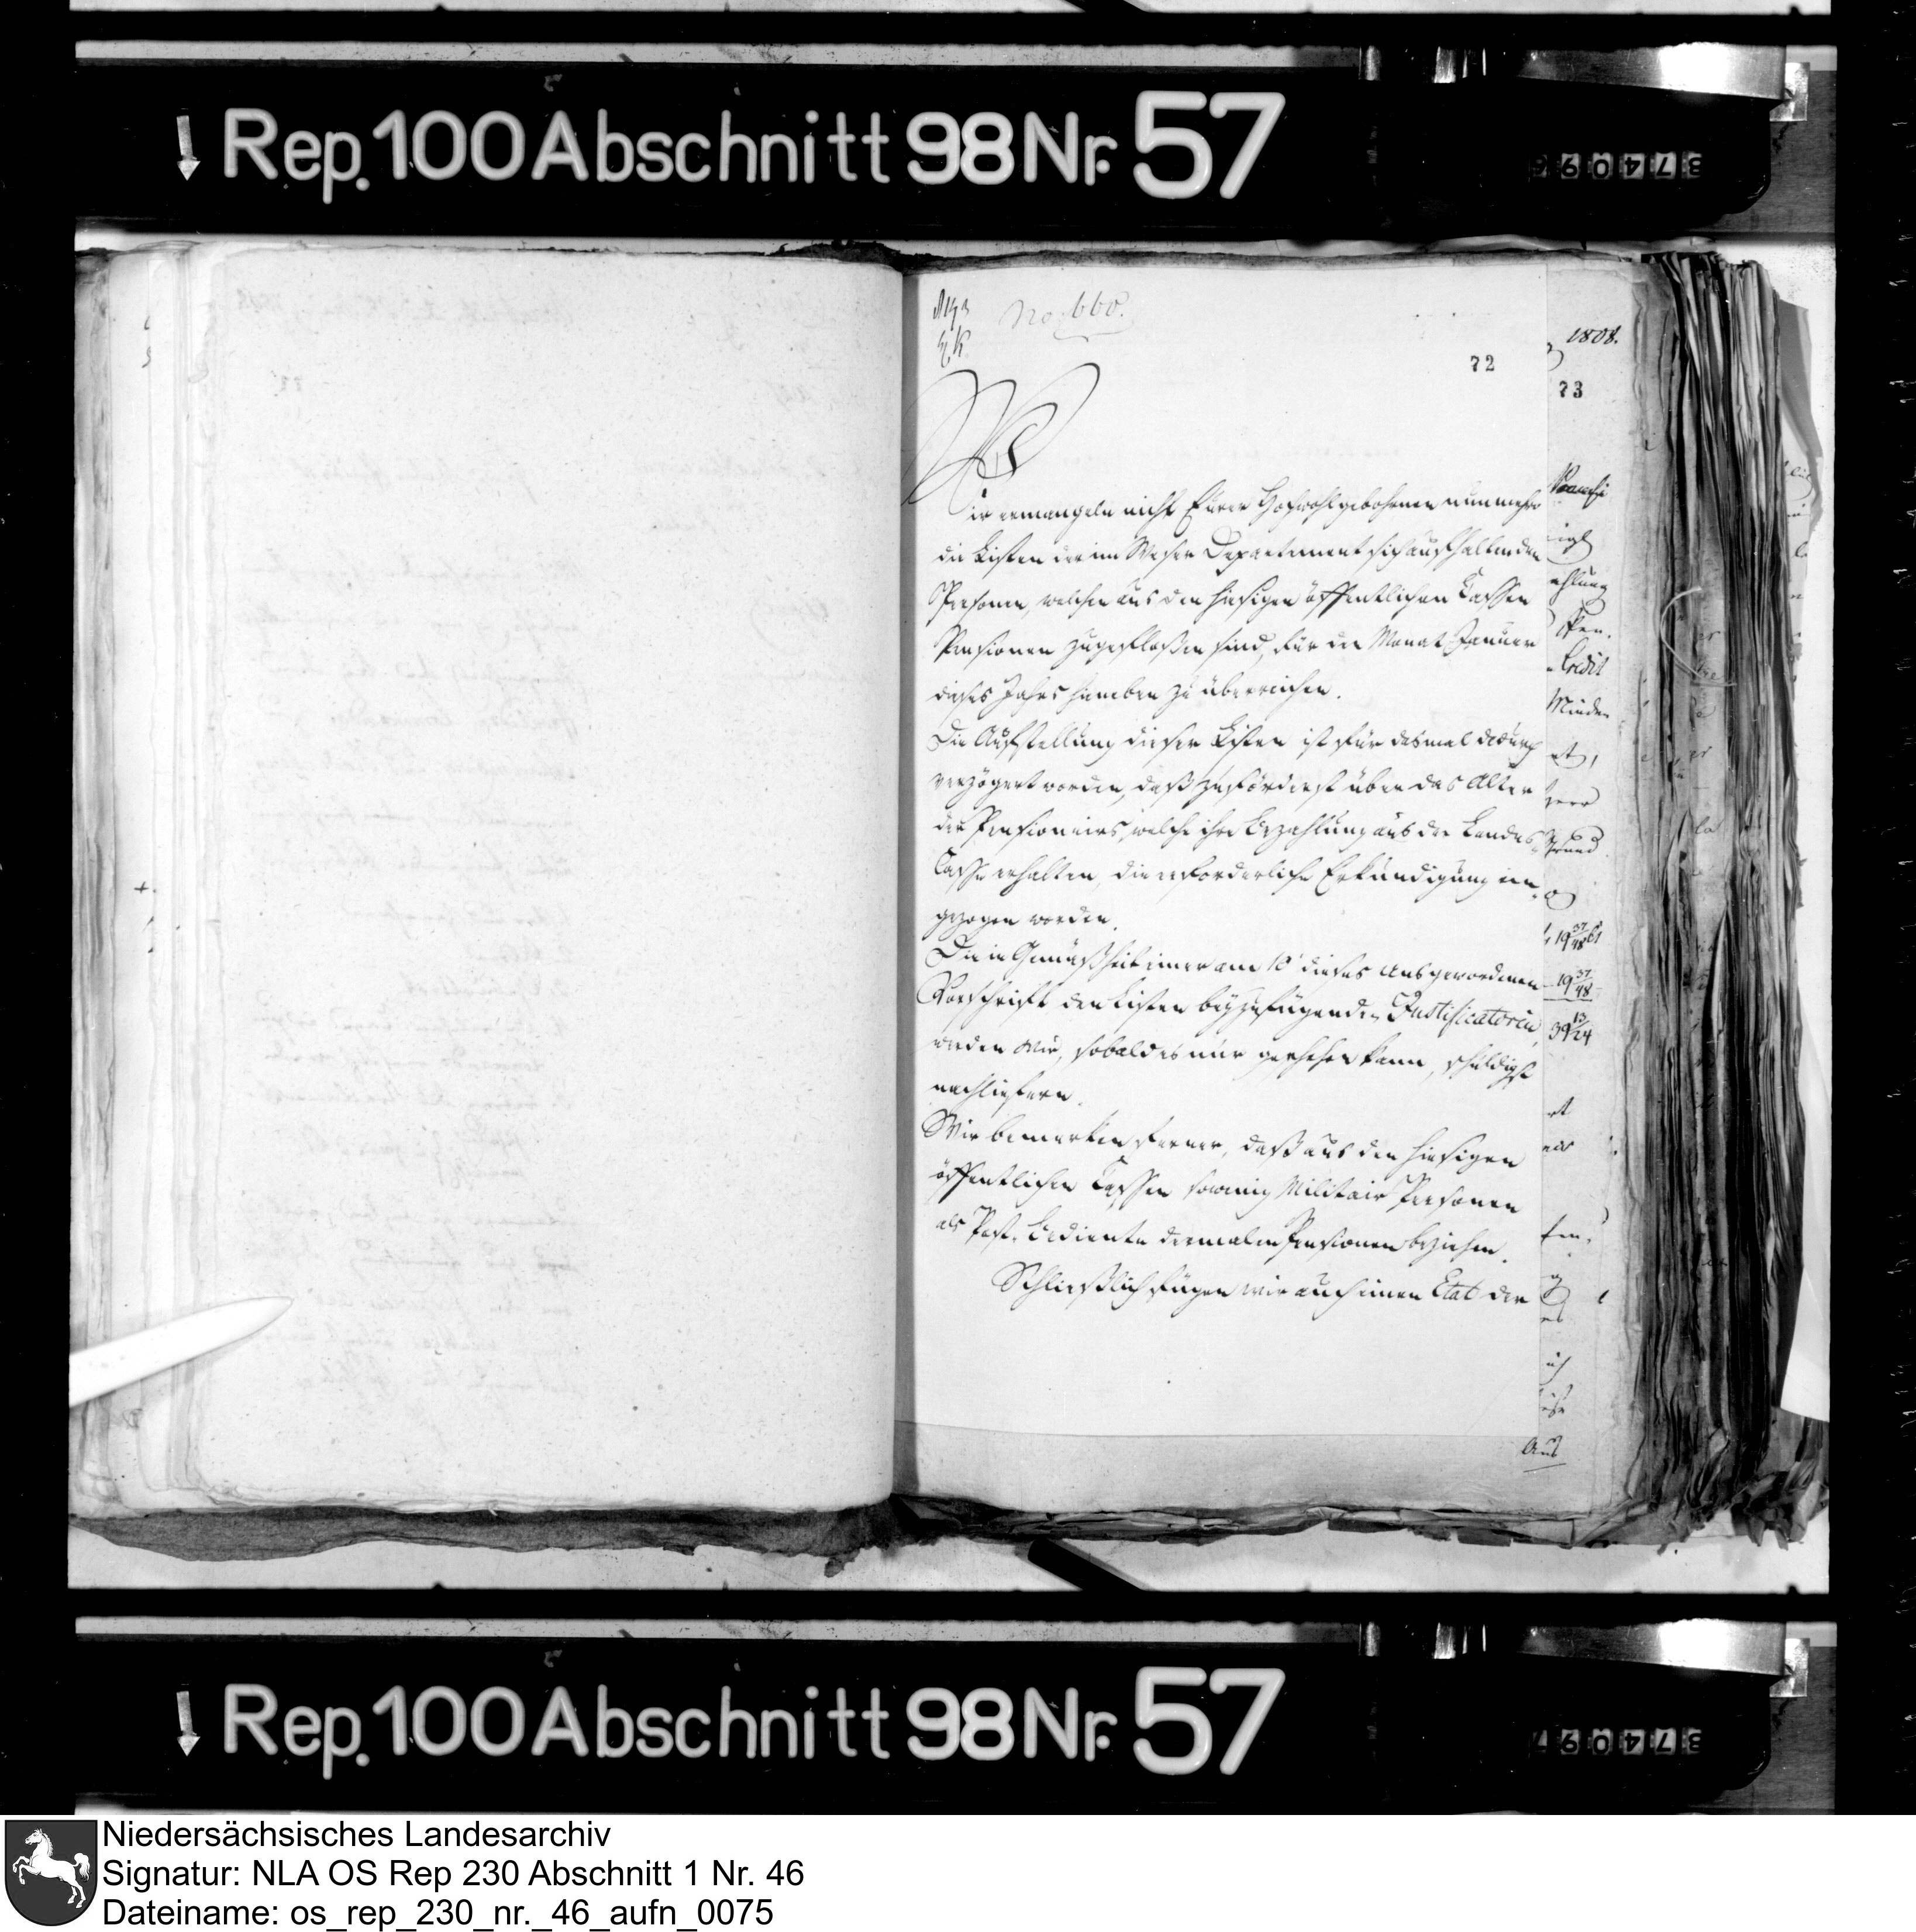 Rep. 100 Abschnitt 98 Nr. 57
37409
No. 660.
1808.
72
73
Wir ermangeln nicht Eurer Hochwohlgebohrnen nunmehro
die Listen der im Weser Departement sich aufhaltenden
Personen, welchen aus den hiesigen öffentlichen Cassen
Pensionen zugeflossen sind, für den Monat Januar
dieses Jahrs hieneben zu überreichen.
Die Aufstellung dieser Listen ist für dasmal dadurch
verzögert worden, daß zuförderst über das Alter
der Pensioniers, welche ihre Bezahlung aus der Landes-
Casse erhalten, die erforderliche Erkundigung ein-
gezogen worden.
Die in Gemäßheit einer am 10 dieses uns gewordenen
Vorschrift den Listen beyzufügenden Justificatorien
werden wir, sobald es nur geschehen kann, schuldigst
nachliefern.
Wir bemerken ferner, daß aus den hiesigen
öffentlichen Cassen so wenig Militair Personen
als Post-Bediente dermalen Pensionen beziehen.
Schließlich fügen wir auch einen Etat der
ahlung
Pen-
Credit
Minden
et,
19 37/48
19 37/48
39 13/24
et
Aus
Rep. 100 Abschnitt 98 Nr. 57
374097
Niedersächsisches Landesarchiv
Signatur: NLA OS Rep 230 Abschnitt 1 Nr. 46
Dateiname: os_rep_230_nr._46_aufn_0075